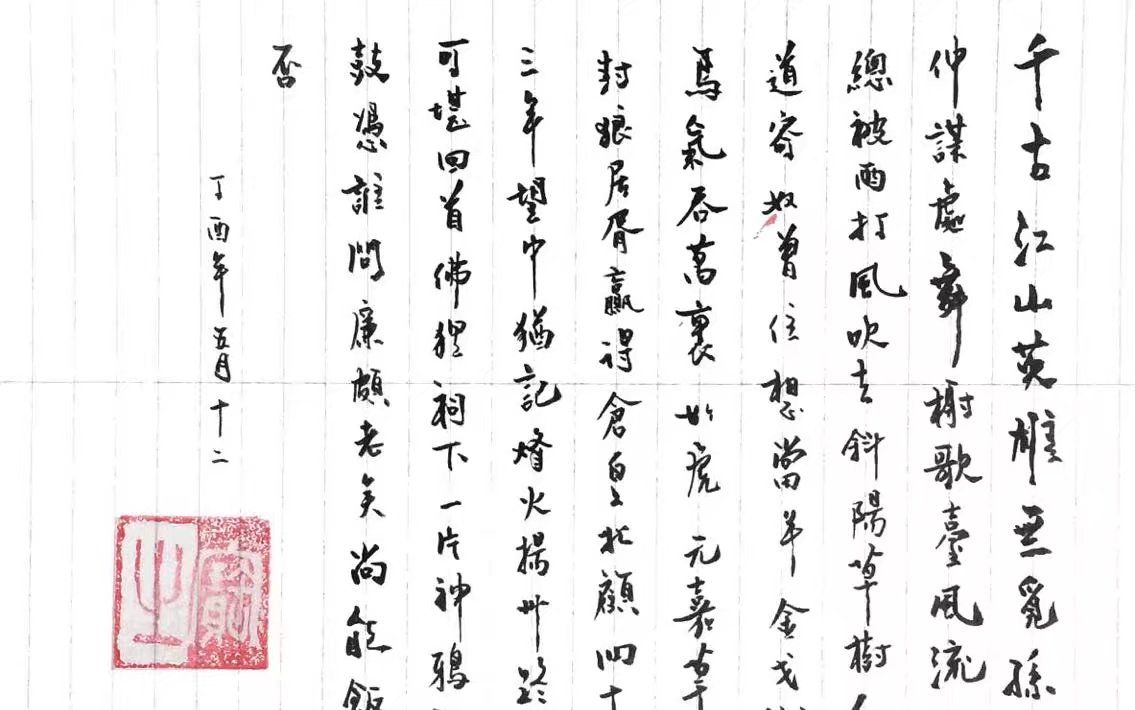 千古江山英雄無覓孫
仲謀處舞榭歌臺風流
總被雨打風吹去斜陽草樹
道寄奴曾住想當年金戈
馬氣吞萬裏如虎元嘉草
封狼居胥贏得倉皇北顧四十
三年望中猶記燈火揚州路
可堪回首佛狸祠下一片神鴉
鼓憑誰問廉頗老矣尚能飯
否
丁酉年五月十二
寶之